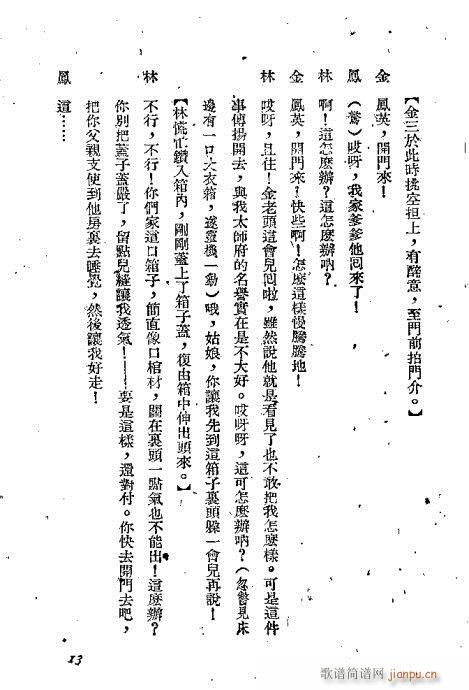 【金三於此時挑空担上，有醉意，至門前拍門介。】
金　鳳英，開門來！
鳳　（驚）哎呀，我家爹爹他回來了！
林　啊！這怎麽辦？這怎麽辦吶？
金　鳳英，開門來？快些啊！怎麽這樣慢騰騰地！
林　哎呀，且住！金老頭這會兒回啦，雖然說他就是看見了也不敢把我怎麽樣。可是這件
事傳揚開去，與我太師府的名譽實在是不大好。哎呀呀，這可怎麽辦吶？（忽瞥見床
邊有一口大衣箱，遂靈機一動）哦，姑娘，你讓我先到這箱子裏頭躲一會兒再說！
【林慌忙鑽入箱內，剛剛蓋上了箱子蓋，復由箱中伸出頭來。】
林　不行，不行！你們家這口箱子，簡直像口棺材，關在裏頭一點氣也不能出！這麽辦？
你別把蓋子蓋嚴了，留點兒縫讓我透氣！——要是這樣，還對付。你快去開門去吧，
把你父親支使到他房裏去睡覺，然後讓我好走！
鳳　這……
13
歌谱简谱网
jianpu.cn